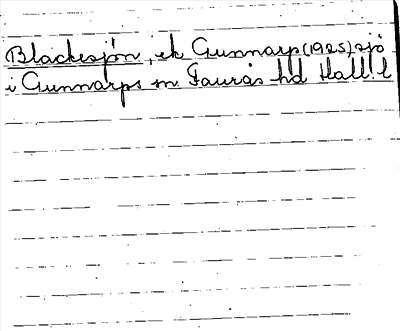 Blackesjön, ek Gunnarp (1925) sjö
i Gunnarps sn Faurås hd Hall. l